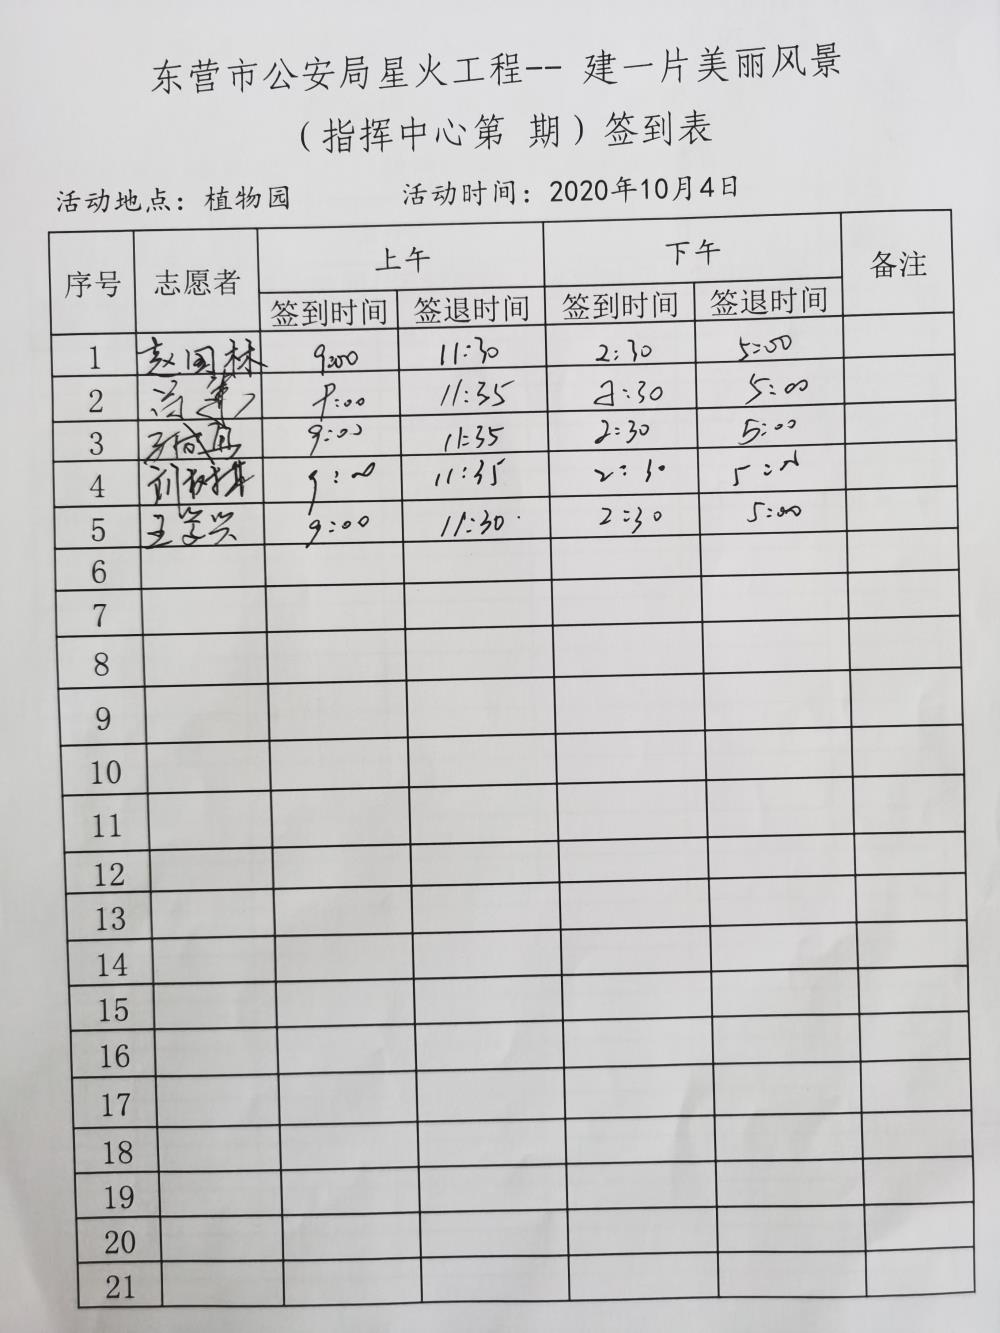 东营市公安局星火工程-- 建一片美丽风景
（指挥中心第 期）签到表
活动地点：植物园 活动时间：2020年10月4日
序号 志愿者 上午 下午 备注
签到时间 签退时间 签到时间 签退时间
1 赵国林 9:00 11:30 2:30 5:00
2 9:00 11:35 2:30 5:00
3 9:00 11:35 2:30 5:00
4 9:00 11:35 2:30 5:00
5 王学兴 9:00 11:30 2:30 5:00
6
7
8
9
10
11
12
13
14
15
16
17
18
19
20
21